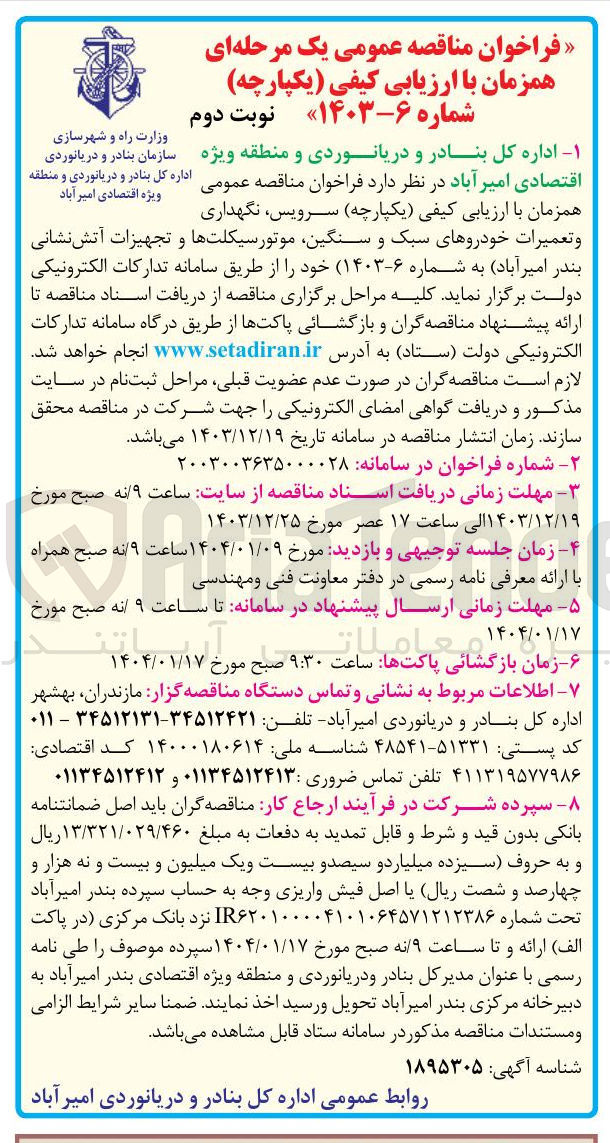 «فراخوان مناقصه عمومی یک مرحله‌ای
همزمان با ارزیابی کیفی (یکپارچه)
شماره ۶-۱۴۰۳» نوبت دوم
وزارت راه و شهرسازی
سازمان بنادر و دریانوردی
اداره کل بنادر و دریانوردی و منطقه
ویژه اقتصادی امیرآباد
۱- اداره کل بنـــادر و دریانــوردی و منطقه ویژه
اقتصادی امیرآباد در نظر دارد فراخوان مناقصه عمومی
همزمان با ارزیابی کیفی (یکپارچه) سـرویس، نگهداری
وتعمیرات خودروهای سبک و سـنگین، موتورسیکلت‌ها و تجهیزات آتش‌نشانی
بندر امیرآباد) به شـماره ۶-۱۴۰۳) خود را از طریق سامانه تدارکات الکترونیکی
دولـت برگزار نماید. کلیـه مراحل برگزاری مناقصه از دریافت اسـناد مناقصه تا
ارائه پیشـنهاد مناقصه‌گران و بازگشـائی پاکت‌ها از طریق درگاه سامانه تدارکات
الکترونیکی دولت (سـتاد) به آدرس www.setadiran.ir انجام خواهد شد.
لازم اسـت مناقصه‌گران در صورت عدم عضویت قبلی، مراحل ثبت‌نام در سـایت
مذکـور و دریافت گواهی امضای الکترونیکی را جهت شـرکت در مناقصه محقق
سازند. زمان انتشار مناقصه در سامانه تاریخ ۱۴۰۳/۱۲/۱۹ می‌باشد.
۲- شماره فراخوان در سامانه: ۲۰۰۳۰۰۳۶۳۵۰۰۰۰۲۸
۳- مهلت زمانی دریافت اسـناد مناقصه از سایت: ساعت ۹/نه صبح مورخ
۱۴۰۳/۱۲/۱۹الی ساعت ۱۷ عصر مورخ ۱۴۰۳/۱۲/۲۵
۴- زمان جلسه توجیهی و بازدید: مورخ ۱۴۰۴/۰۱/۰۹ساعت ۹/نه صبح همراه
با ارائه معرفی نامه رسمی در دفتر معاونت فنی ومهندسی
۵- مهلت زمانی ارسـال پیشنهاد در سامانه: تا سـاعت ۹ /نه صبح مورخ
۱۴۰۴/۰۱/۱۷
۶-زمان بازگشائی پاکت‌ها: ساعت ۹:۳۰ صبح مورخ ۱۴۰۴/۰۱/۱۷
۷- اطلاعات مربوط به نشانی وتماس دستگاه مناقصه‌گزار: مازندران، بهشهر
اداره کل بنـادر و دریانوردی امیرآباد- تلفـن: ۳۴۵۱۲۴۲۱-۳۴۵۱۲۱۳۱ - ۰۱۱
کد پستی: ۵۱۳۳۱-۴۸۵۴۱ شناسـه ملی: ۱۴۰۰۰۱۸۰۶۱۴ کـد اقتصادی:
۴۱۱۳۱۹۵۷۷۹۸۶ تلفن تماس ضروری :۰۱۱۳۴۵۱۲۴۱۳ و ۰۱۱۳۴۵۱۲۴۱۲
۸- سپرده شـرکت در فرآیند ارجاع کار: مناقصه‌گران باید اصل ضمانتنامه
بانکی بدون قید و شرط و قابل تمدید به دفعات به مبلغ ۱۳/۳۲۱/۰۲۹/۴۶۰ریال
و به حروف (سـیزده میلیاردو سیصدو بیسـت ویک میلیون و بیست و نه هزار و
چهارصد و شصت ریال) یا اصل فیش واریزی وجه به حساب سپرده بندر امیرآباد
تحت شماره IR۶۲۰۱۰۰۰۰۴۱۰۱۰۶۴۵۷۱۲۱۲۳۸۶ نزد بانک مرکزی (در پاکت
الف) ارائه و تا سـاعت ۹/نه صبح مورخ ۱۴۰۴/۰۱/۱۷سپرده موصوف را طی نامه
رسمی با عنوان مدیرکل بنادر ودریانوردی و منطقه ویژه اقتصادی بندر امیرآباد به
دبیرخانه مرکزی بندر امیرآباد تحویل ورسید اخذ نمایند. ضمنا سایر شرایط الزامی
ومستندات مناقصه مذکوردر سامانه ستاد قابل مشاهده می‌باشد.
شناسه آگهی: ۱۸۹۵۳۰۵
روابط عمومی اداره کل بنادر و دریانوردی امیرآباد